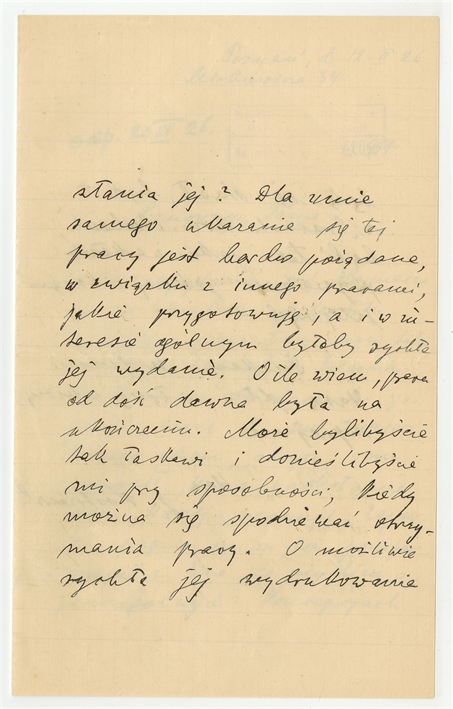 słania jej? Dla mnie
samego ukazanie się tej
pracy jest bardzo pożądane,
w związku z innego pracami,
jakie przygotowuję, a i w in-
teresie ogólnym byłoby rychłe
jej wydanie. O ile wiem, praca
od dość dawna była na
ukończeniu. Może bylibyście
tak łaskawi i donieślibyście
mi przy sposobności, kiedy
można się spodziewać otrzy-
mania pracy. O możliwie
rychłe jej wydrukowanie